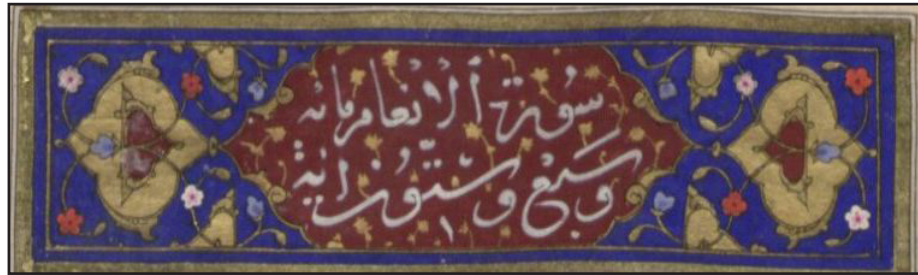 سورة الانعام مايه
وسبع وستون اية